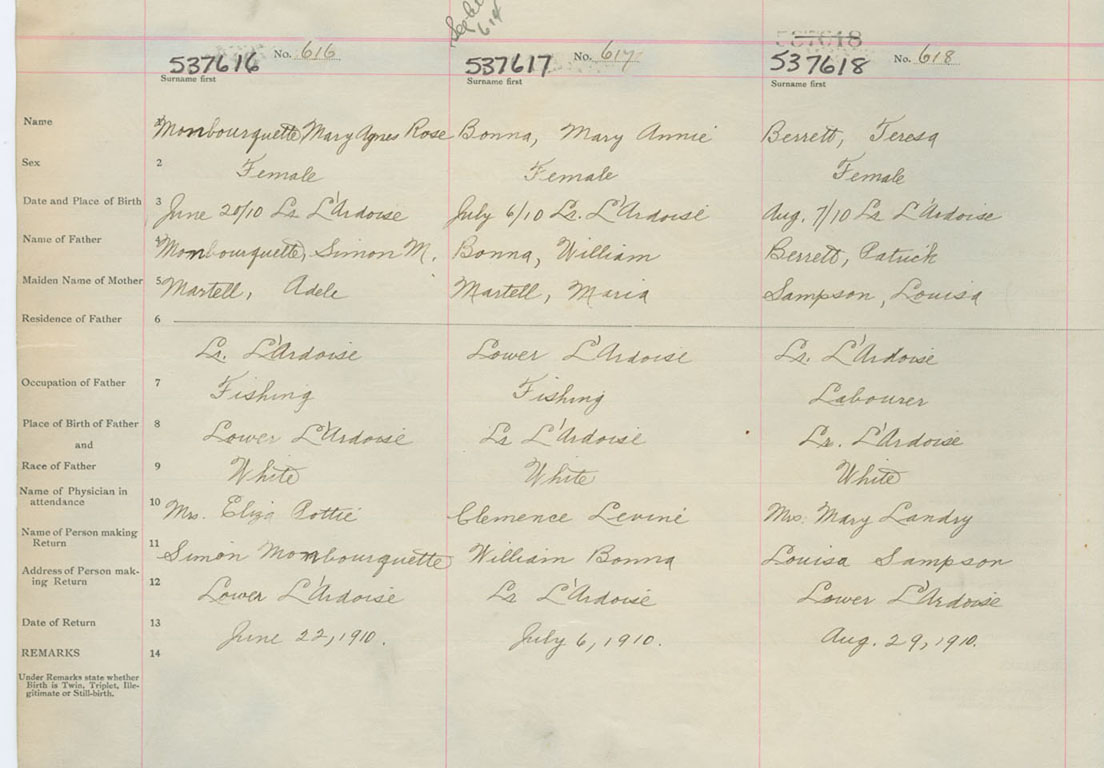 537616 No. 616 537617 No. 617 537618 No. 618
Surname first Surname first Surname first
Name 1 Monbourquette, Mary Agnes Rose Bonna, Mary Annie Berrett, Teresa
Sex 2 Female Female Female
Date and Place of Birth 3 June 20/10 Lr. L'Ardoise July 6/10 Lr. L'Ardoise Aug. 7/10 Lr. L'Ardoise
Name of Father 4 Monbourquette, Simon M. Bonna, William Berrett, Patrick
Maiden Name of Mother 5 Martell, Adele Martell, Maria Sampson, Louisa
Residence of Father 6
Lr. L'Ardoise Lower L'Ardoise Lr. L'Ardoise
Occupation of Father 7 Fishing Fishing Labourer
Place of Birth of Father 8 Lower L'Ardoise Lr L'Ardoise Lr. L'Ardoise
and
Race of Father 9 White White White
Name of Physician in
attendance 10 Mrs. Eliza Pottie Clemence Levine Mrs. Mary Landry
Name of Person making
Return 11 Simon Monbourquette William Bonna Louisa Sampson
Address of Person mak-
ing Return 12 Lower L'Ardoise Lr L'Ardoise Lower L'Ardoise
Date of Return 13 June 22, 1910. July 6, 1910. Aug. 29, 1910.
REMARKS 14
Under Remarks state whether
Birth is Twin, Triplet, Ille-
gitimate or Still-birth.